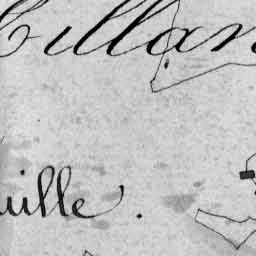 Cillan
uille.